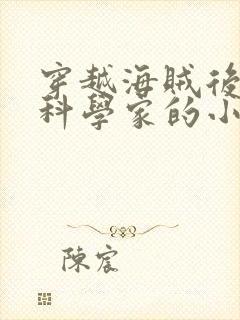 穿越海賊後
科學家的小
陳宸